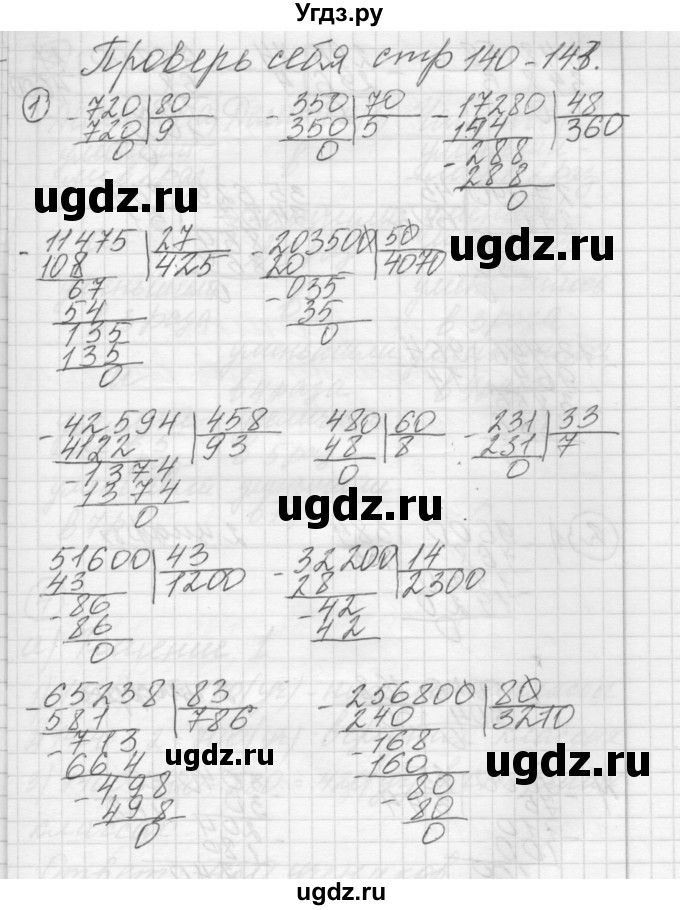 Угдз.ру
Проверь себя стр 140-143.
① - 720 | 80    - 350 | 70    - 17280 | 48
720 | 9    350 | 5    144 | 360
0    0    - 288
288
0
ugdz.ru
ugdz.ru
- 11475 | 27    - 203500 | 50
108 | 425    20 | 4070
67    - 035
54    35
135    0
135
0
- 42594 | 458    480 | 60    - 231 | 33
4122 | 93    48 | 8    231 | 7
- 1374    0    0
1374
0
ugdz.ru
51600 | 43    - 32200 | 14
43 | 1200    28 | 2300
- 86    - 42
- 86    42
0
ugdz.ru
- 65238 | 83    - 256800 | 80
581 | 786    240 | 3210
- 713    - 168
664    160
- 498    80
498    - 80
0    0
ugdz.ru
ugdz.ru
ugdz.ru